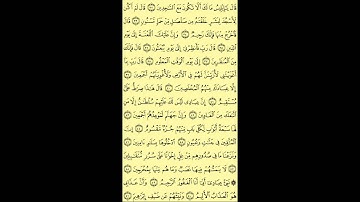 قَالَ يَـٰٓإِبْلِيسُ مَا لَكَ أَلَّا تَكُونَ مَعَ ٱلسَّـٰجِدِينَ ۝٣٢ قَالَ لَمْ أَكُن
لِّأَسْجُدَ لِبَشَرٍ خَلَقْتَهُۥ مِن صَلْصَـٰلٍ مِّنْ حَمَإٍ مَّسْنُونٍ ۝٣٣ قَالَ
فَٱخْرُجْ مِنْهَا فَإِنَّكَ رَجِيمٌ ۝٣٤ وَإِنَّ عَلَيْكَ ٱللَّعْنَةَ إِلَىٰ يَوْمِ
ٱلدِّينِ ۝٣٥ قَالَ رَبِّ فَأَنظِرْنِىٓ إِلَىٰ يَوْمِ يُبْعَثُونَ ۝٣٦ قَالَ فَإِنَّكَ
مِنَ ٱلْمُنظَرِينَ ۝٣٧ إِلَىٰ يَوْمِ ٱلْوَقْتِ ٱلْمَعْلُومِ ۝٣٨ قَالَ رَبِّ
بِمَآ أَغْوَيْتَنِى لَأُزَيِّنَنَّ لَهُمْ فِى ٱلْأَرْضِ وَلَأُغْوِيَنَّهُمْ أَجْمَعِينَ ۝٣٩
إِلَّا عِبَادَكَ مِنْهُمُ ٱلْمُخْلَصِينَ ۝٤٠ قَالَ هَـٰذَا صِرَٰطٌ عَلَىَّ
مُسْتَقِيمٌ ۝٤١ إِنَّ عِبَادِى لَيْسَ لَكَ عَلَيْهِمْ سُلْطَـٰنٌ إِلَّا مَنِ
ٱتَّبَعَكَ مِنَ ٱلْغَاوِينَ ۝٤٢ وَإِنَّ جَهَنَّمَ لَمَوْعِدُهُمْ أَجْمَعِينَ ۝٤٣
لَهَا سَبْعَةُ أَبْوَٰبٍ لِّكُلِّ بَابٍ مِّنْهُمْ جُزْءٌ مَّقْسُومٌ ۝٤٤ إِنَّ
ٱلْمُتَّقِينَ فِى جَنَّـٰتٍ وَعُيُونٍ ۝٤٥ ٱدْخُلُوهَا بِسَلَـٰمٍ ءَامِنِينَ ۝٤٦
وَنَزَعْنَا مَا فِى صُدُورِهِم مِّنْ غِلٍّ إِخْوَٰنًا عَلَىٰ سُرُرٍ مُّتَقَـٰبِلِينَ ۝٤٧
لَا يَمَسُّهُمْ فِيهَا نَصَبٌ وَمَا هُم مِّنْهَا بِمُخْرَجِينَ ۝٤٨
۞ نَبِّئْ عِبَادِىٓ أَنِّىٓ أَنَا ٱلْغَفُورُ ٱلرَّحِيمُ ۝٤٩ وَأَنَّ عَذَابِى
هُوَ ٱلْعَذَابُ ٱلْأَلِيمُ ۝٥٠ وَنَبِّئْهُمْ عَن ضَيْفِ إِبْرَٰهِيمَ ۝٥١